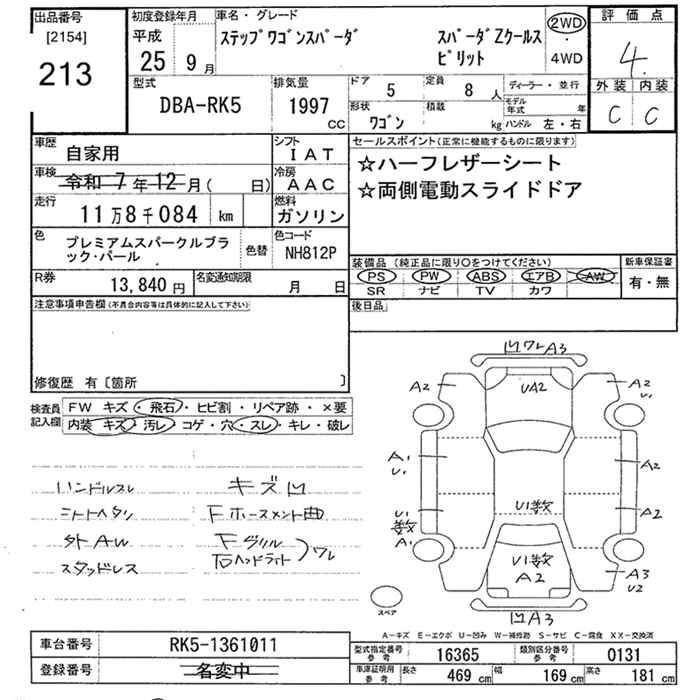 出品番号
[2154]
213
初度登録年月
平成
25 9月
車名・グレード
ステップワゴンスパーダ スパーダZクールス
ピリット
2WD
4WD
評価点
4
外装 内装
C C
型式
DBA-RK5
排気量
1997
cc
ドア 5
定員 8人
形状 ワゴン
積載 kg
ディーラー・並行
モデル年式 年
ハンドル 左・右
車歴 自家用
シフト IAT
車検 令和7年12月(日)
冷房 AAC
走行 11万8千084 km
燃料 ガソリン
色 プレミアムスパークルブラ
ック・パール
色替
色コード NH812P
R券 13,840円
名変通知期限 月 日
セールスポイント(正常に機能するものに限ります)
☆ハーフレザーシート
☆両側電動スライドドア
装備品(純正品に限り○をつけてください)
PS PW ABS エアB AW
SR ナビ TV カワ
新車保証書
有・無
後日品
注意事項申告欄(不具合内容等は具体的に記入して下さい)
修復歴 有〔箇所 〕
検査員記入欄
FW キズ・飛石・ヒビ割・リペア跡・×要
内装 キズ・汚レ・コゲ・穴・スレ・キレ・破レ
ハンドルスレ キズ凹
シートヘタリ F ホースメント曲
外AW Fグリル
スタッドレス 右ヘッドライト ワレ
凹ワレA3
A2 UA2 A2
U1
A1
U1 A2
U1数
A1 U1数 A2
U1数
A2 A3
U2
凹A3
スペア
A-キズ E-エクボ U-凹み W-補修跡 S-サビ C-腐食 XX-交換済
車台番号 RK5-1361011
登録番号 名変中
型式指定番号参考 16365
類別区分番号参考 0131
車庫証明用参考 長さ 469cm 幅 169cm 高さ 181cm